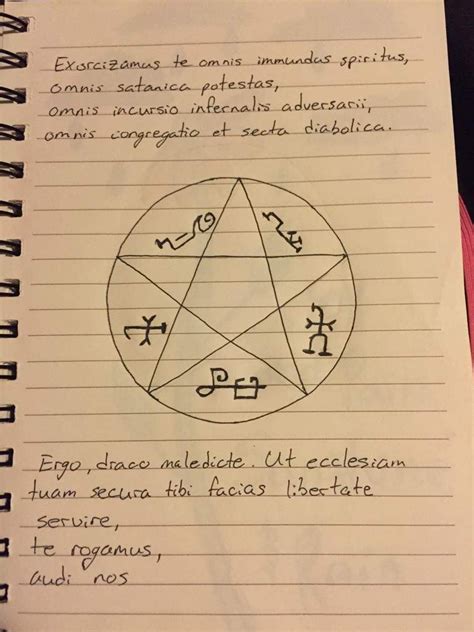 Exorcizamus te omnis immundus spiritus,
omnis satanica potestas,
omnis incursio infernalis adversarii,
omnis congregatio et secta diabolica.
Ergo, draco maledicte. Ut ecclesiam
tuam secura tibi facias libertate
servire,
te rogamus,
audi nos